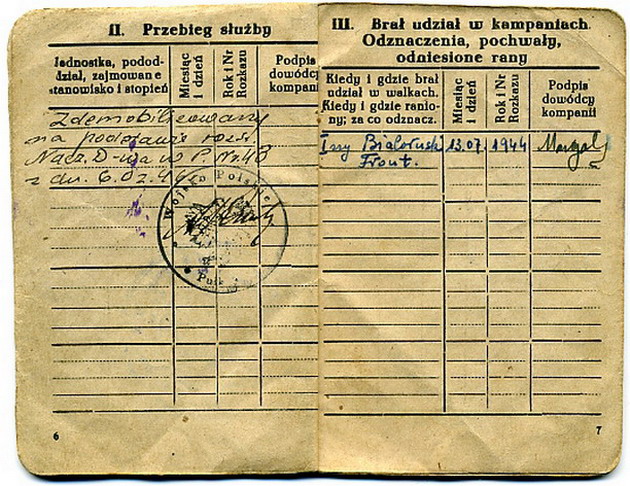 II. Przebieg służby
Jednostka, podod-
dział, zajmowane
stanowisko i stopień
Miesiąc
i dzień
Rok i Nr
Rozkazu
Podpis
dowódcy
kompanii
Zdemobilizowany
na podstawie rozk.
Nacz. D-wa W.P. Nr. 48
z dn. 6.02.46
Wojsko Polskie
Pułk
6
III. Brał udział w kampaniach.
Odznaczenia, pochwały,
odniesione rany
Kiedy i gdzie brał
udział w walkach.
Kiedy i gdzie ranio-
ny; za co odznacz.
Miesiąc
i dzień
Rok i Nr
Rozkazu
Podpis
dowódcy
kompanii
Iszy Białoruski 13.07. 1944
Front.
7